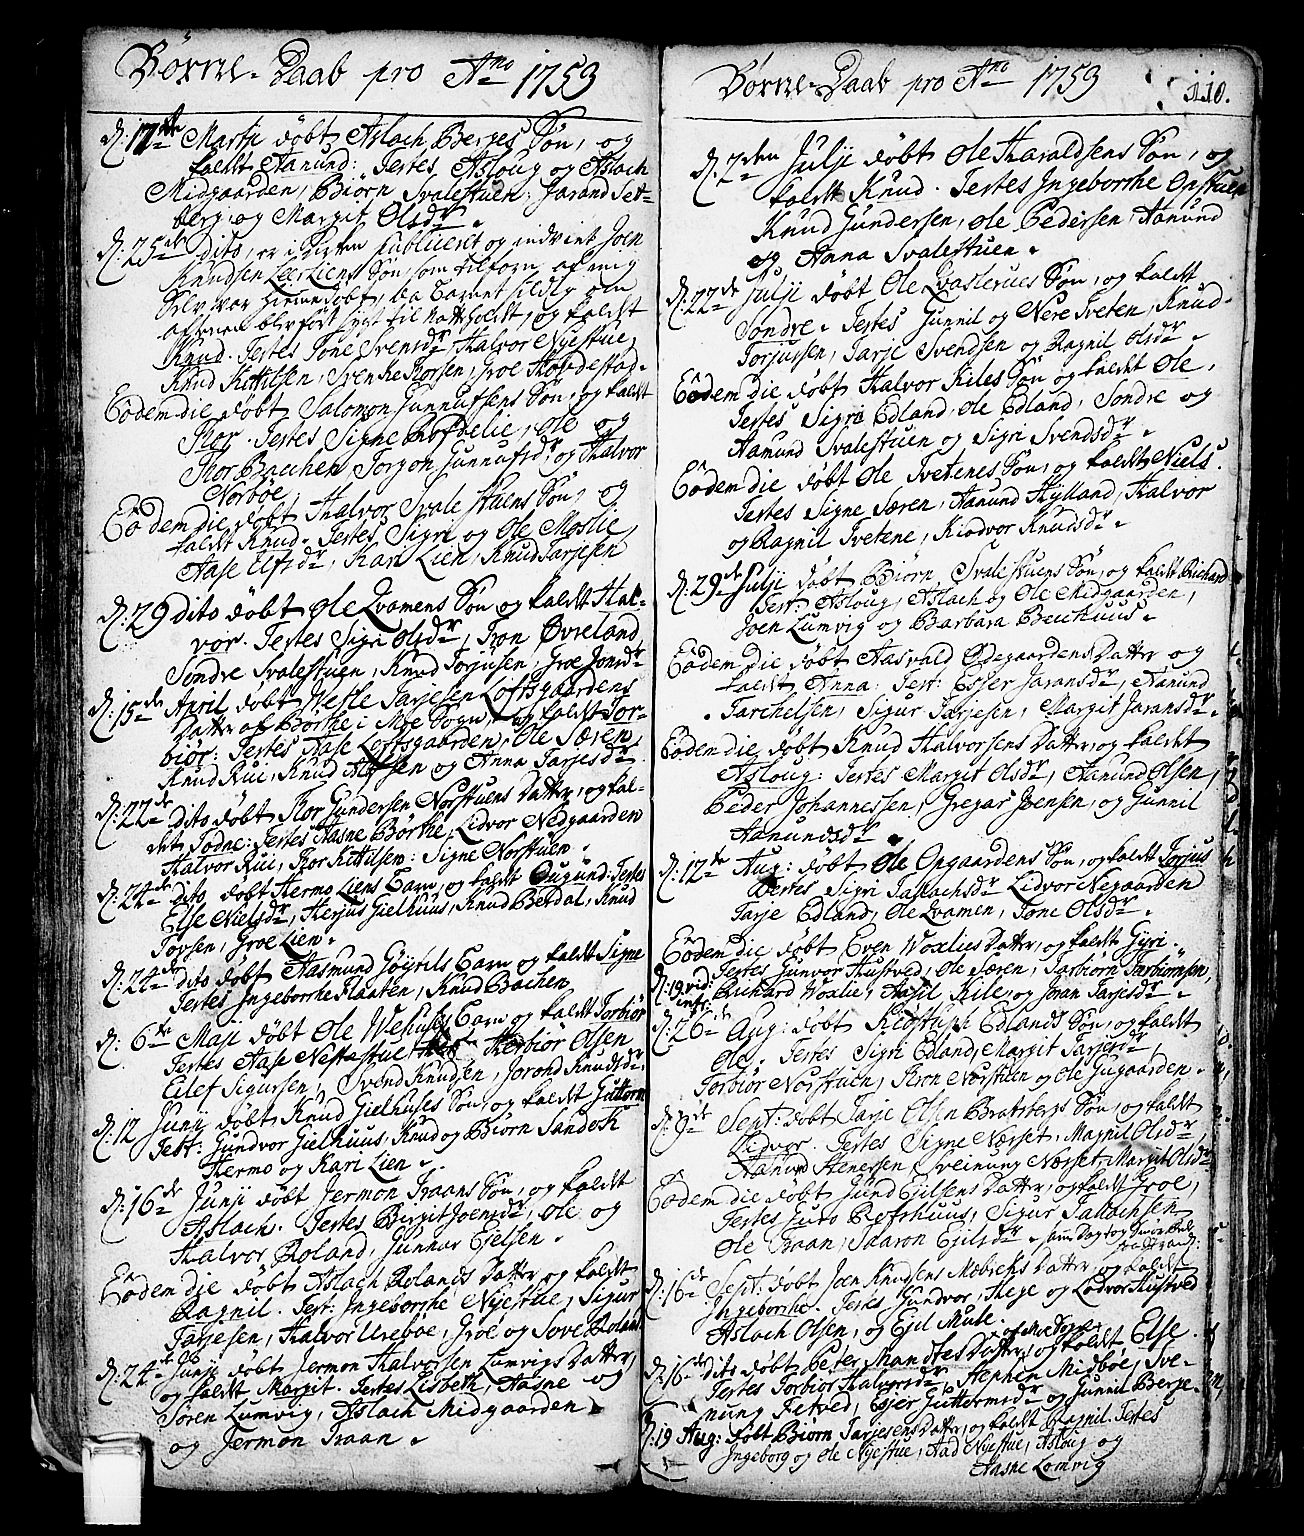 Børne-Daab pro Ano 1753
D: 17de Martji døbt Aslach Berges Søn, og
kaldt Aanund: Testes Asloug og Aslach
Midgaarden, Biørn Svalestuen, Jarand Set-
berg, og Margit Olsdr.
D: 25de dito, er i Kirken publiceret og indvint Joen
Knudsen Leer Liens Søn, som tilforn af mig
Selv var hiemedøbt, da Barnet sildig om
aftenen blef ført sygt til Natthold, og kaldt
Knud. Testes Tone Svensdr, Halvor Nyestue,
Knud Kittilsen, Svenke Rorsen, Groe Hovdestad.
Eodem die døbt Salomon Gunnulfsens Søn, og kaldt
Thor. Testes Signe Bøfbelie, Ole og
Thor Bachen Torgon Gunnufsdr og Halvor
Norbøe,
Eodem die døbt Halvor Svalestuens Søn, og
kaldt Knud. Testes, Sigri og Ole Moslie,
Aase Elfsdr, Kari Lien, Knud Tarjesen
D: 29 dito døbt Ole Qvamens Søn og kaldt Hal-
vor. Testes Sigri Olsdr, Tron Øvreland,
Søndre Svalestuen, Knud Torjusen, Groe Jonsdr
D: 15de April døbt Wesle Tarjesen Loftsgaardens
Datter af Børthe i Moe Sogn, og kaldt Tor-
biør: Testes Aase Loftsgaarden, Ole Særen,
Knud Rui, Knud Alfsen og Anna Tarjesdr
D: 22de dito døbt Thor Gundersen Norstuens Datter, og kal-
det Todne: Testes Aasne Børthe, Lidvor Nedgaarden
Halvor Rui, Thor Kittilsen: Signe Norstuen.
D: 24de dito døbt Hermo Liens Barn, og kaldt Ougund: Testes
Else Nielsdr, Herjus Gielhuus, Knud Berdal, Knud
Torsen, Groe Lien.
D: 24de dito døbt Aasmund Gøytils Barn og kaldt Signe
Testes Ingeborhe Plaaten, Knud Bachen
D: 6de Maji døbt Ole Wehuses Barn og kaldt Torbiør
Testes Aase Nestestue Herbiør Olsen
Eilef Sigursen, Svend Knudsen, Jorond Knudsdr,
D: 12 Junj døbt Knud Gielhuses Søn, og kaldt Guttorm
Test: Gundvor Gielhuus, Knud og Biørn Sandok
Hermo og Kari Lien.
D: 16de Junji døbt Jermon Traans Søn, og kaldt
Aslach. Testes Birgit Joensdr, Ole og
Halvor Roland, Gunnar Ejelsen.
Eodem die døbt Aslach Rolands Datter og kaldt
Ragnil. Test: Ingeborhe Nyestue, Sigur
Tarjesen, Halvor Urebøe, Groe og Tove Roland
D: 24de Junji døbt Jermon Halvorsen Lumvigs Datter,
og kaldt Margit. Testes Lisbeth, Aasne og
Søren Lumvig, Aslach Midgaarden
og Jermon Traan.
Børne-Daab pro Ano 1753
110.
D: 7den Julji døbt Ole Haraldsens Søn, og
kaldt Knud. Testes Ingeborhe Opstuen
Knud Gundersen, Ole Pedersen, Aanund
og Anna Svalestuen.
D: 22de Julji døbt Ole Qvaslerues Søn, og kaldt
Søndre. Testes Gunnil og Nere Tveten, Knud
Torjussen, Tarje Svendsen og Ragnil Olsdr.
Eodem die døbt Halvor Kiles Søn og kaldt Ole,
Testes Sigri Edland, Ole Edland, Søndre og
Aamund Svalestuen og Sigri Svendsdr.
Eodem die døbt Ole Tvetenes Søn, og kaldt Niels.
Testes Signe Særen, Aanund Hylland, Halvor
og Ragnil Tvetene, Kiødvor Knudsdr.
D: 29de Julji døbt Biørn Svalestuens Søn, og kaldt Richard
Test: Asloug, Aslach og Ole Midgaarden,
Joen Lumvig og Barbara Beuchuus.
Eodem die døbt Aasvald Ødegaardens Datter og
kaldt Anna: Test: Esser Jaransdr, Aanund
Tarchelsen, Sigur Tarjesen, Margit Jaransdr.
Eodem die døbt Knud Halvorsens Datter, og kaldet
Asloug: Testes Margit Olsdr, Aamund Olsen,
Peder Johannessen, Gregar Joensen, og Gunnil
Aamundsdr.
D: 12te Aug: døbt Ole Opgaardens Søn, og kaldt Torjus
Testes Sigri Tallachsdr Lidvor Negaarden
Tarje Edland, Ole Qvamen, Tone Olsdr.
Eodem die døbt Even Woxlies Datter, og kaldt Gyri.
D: 19 vid: infr: Testes Gunvor Hustved, Ole Særen, Tarbiørn Tarbiørnsen,
Richard Woxlie, Aasil Kile, og Joran Tarjesdr.
D: 26de Aug: døbt Kiøstuph Edlands Søn, og kaldt
Ole. Testes Sigri Edland, Margit Tarjesdr,
Torbiør Norstuen, Tron Norstuen og Ole Gugaarden.
D: 9de Sept: døbt Tarje Olsen Bratsbergs Søn, og kaldt
Lidvor. Testes Signe Nærset, Magnil Olsdr
Aanund Stenersen Sveinung Nærset Margit Olsdr
Eodem die døbt Jund Ejelsens Datter, og kaldt Groe,
Testes Juro Refshuus, Sigur Tallachsen
Ole Traan, Saaron Ejilsdr.
D: 16de Sept: døbt Joen Knudsens Møbecks Datter og kaldt
Ingeborhe. Testes Gundvor, Hege og Lidvor Hustved
Aslach Olsen, og Ejil Mule.
D: 16de dito døbt Peter Mandtes Datter, og kaldt Else.
Testes Torbiør Halvorsdr, Stephen Midbøe, Sve-
nung Fetved, Egjer Guttormsdr og Gunnil Berge
D: 19 Aug: døbt Biørn Tarjesens Datter, og kaldt Ragnil. Testes
Ingeborg og Ole Nyestue, Aad Nyestue, Asloug og
Aasne Lomvig